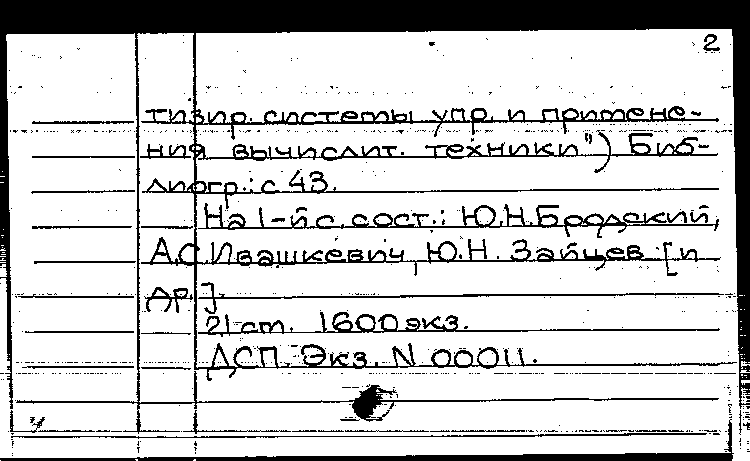 2
тизир. системы упр. и примене-
ния вычислит. техники") Биб-
лиогр.: с 43.
На 1-й с. сост.: Ю.Н.Бродский,
А.С.Ивашкевич, Ю.Н. Зайцев [и
др.]
21 ст. 1600 экз.
ДСП. Экз. N 00011.